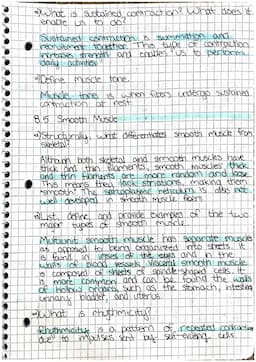 What is sustained contraction? What does it
enable us to do?
Sustained contraction is summation and
recruitment together. This type of contraction
increases strength and enables us to perform
daily activities.
Define muscle tone.
Muscle tone is when fibers undergo sustained
contraction at rest.
8.5 Smooth Muscle
Structurally, what differentiates smooth muscle from
skeletal?
Although both skeletal and smooth muscles have
thick and thin filaments, smooth muscles' thick
and thin filaments are more random and loose.
This means they lack striations, making them
smooth. The sarcoplasmic reticulum is also not
well developed in smooth muscle fibers
List, define, and provide examples of the two
major types of smooth muscle.
Multiunit smooth muscle has separate muscle
as opposed to being organized into sheets. It
is found in irises of the eyes and in the
walls of blood vessels. Visceral smooth muscle
is composed of sheets of spindle-shaped cells. It
is more common and can be found in the walls
of hollow organs, such as the stomach, intestines,
urinary bladder, and uterus.
What is rhythmicity?
Rhythmicity is a pattern of repeated contractions
due to impulses sent by self-exciting cells.